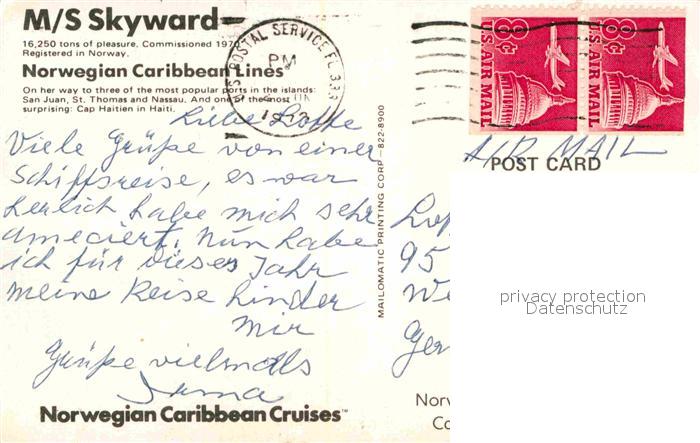 M/S Skyward
16,250 tons of pleasure. Commissioned 1970
Registered in Norway.
Norwegian Caribbean Lines
On her way to three of the most popular ports in the islands:
San Juan, St. Thomas and Nassau. And one of the most
surprising: Cap Haitien in Haiti.
U.S. POSTAL SERVICE FL 333
PM
8¢
U.S. AIR MAIL
8¢
U.S. AIR MAIL
AIR MAIL
POST CARD
Liebe Lotte
Viele Grüße von einer
Schiffsreise, es war
herlich habe mich sehr
ameciert. Nun habe
ich für dieses Jahr
meine Reise hinder
mir
Grüße vielmals
Irma
MAILOMATIC PRINTING CORP - 822-8900
95
We
Ger
privacy protection
Datenschutz
Norwegian Caribbean Cruises™
Norw
Co